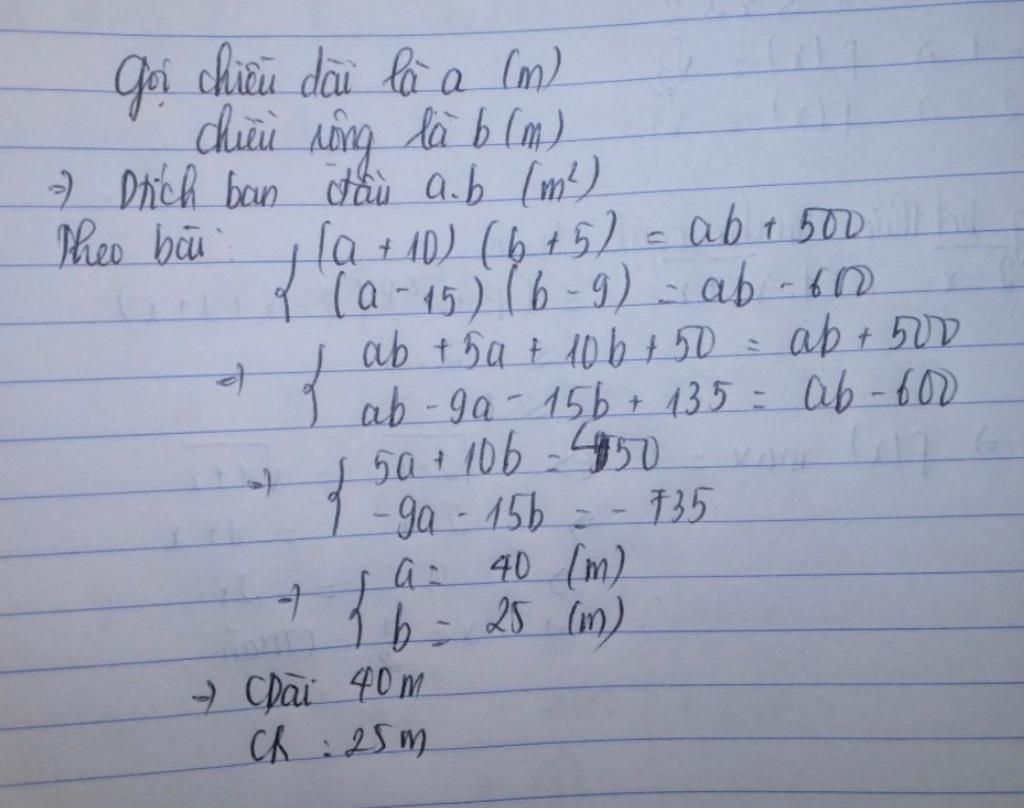 Gọi chiều dài là a (m)
chiều rộng là b (m)
=) Dtích ban đầu a.b (m²)
Theo bài: { (a + 10) (b + 5) = ab + 500
(a - 15) (b - 9) = ab - 600
=) { ab + 5a + 10b + 50 = ab + 500
ab - 9a - 15b + 135 = ab - 600
=) { 5a + 10b = 450
-9a - 15b = - 735
=) { a = 40 (m)
b = 25 (m)
=) CDài 40m
CR : 25m